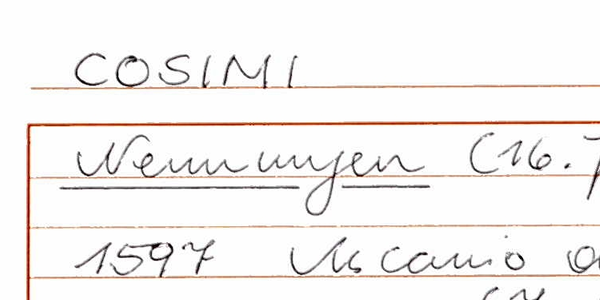 COSIMI
Nennungen (16.
1597 Ascanio